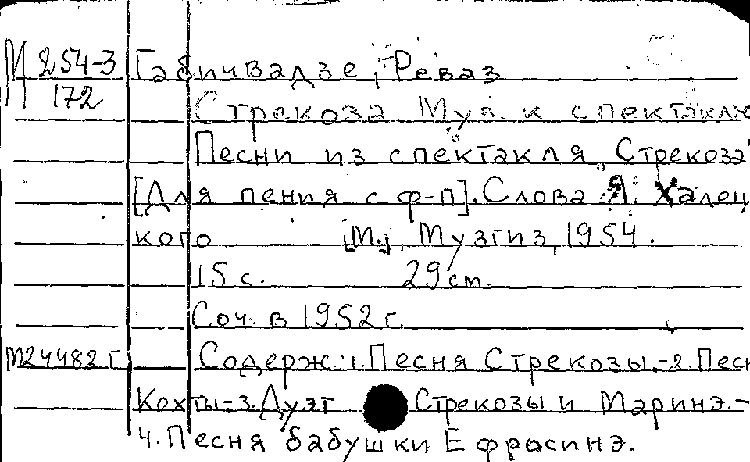 М 254-3 Габичвадзе, Реваз
172
Стрекоза Муз. к спектаклю
Песни из спектакля „Стрекоза"
[Для пения с ф-п]. Слова Я. Халец
кого [М.], Музгиз, 1954.
15 с. 29 см.
Соч. в 1952 г.
М24482 г. Содерж: 1. Песня Стрекозы.-2. Песн
Кохты-3. Дуэт Стрекозы и Маринэ.-
4. Песня бабушки Ефрасинэ.